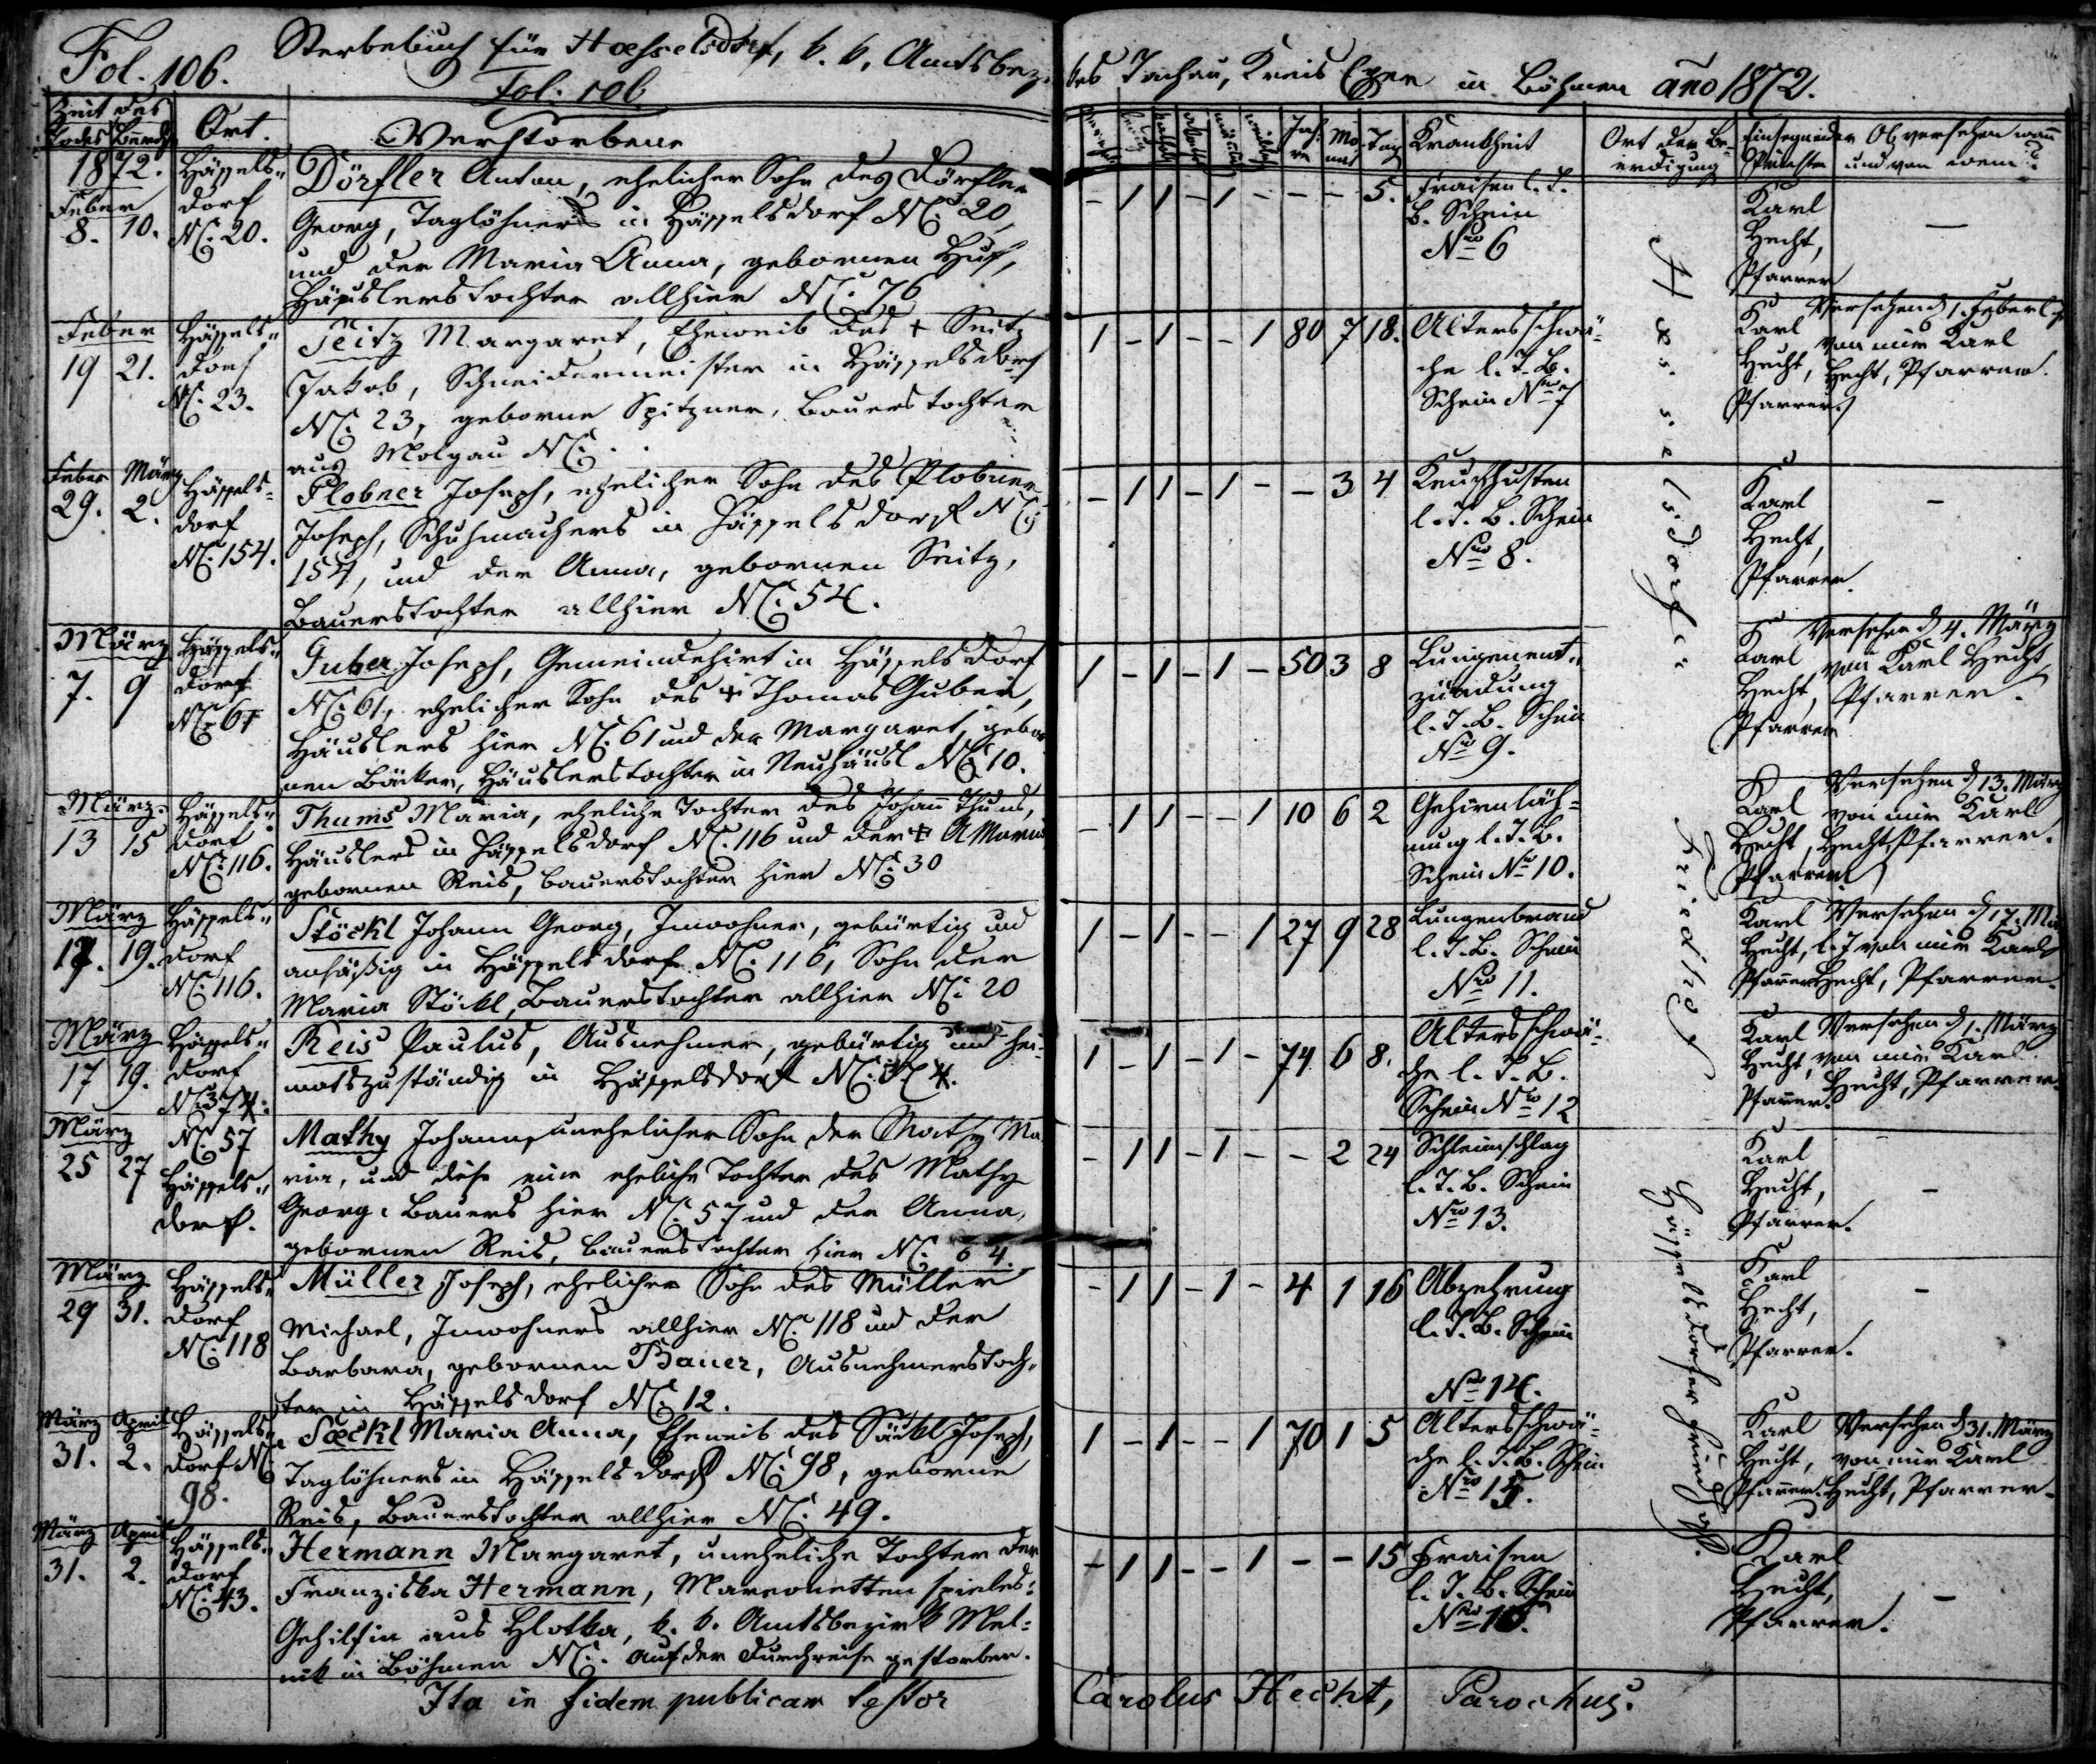 Fol. 106.
Sterbebuch für Haesselsdorf, k. k. Amtsbezirkes Tachau, Kreis Eger in Böhmen año 1872.
Fol. 106.
Zeit des
Todes
Ort.
Verstorbene
Jahre
Monat
Tag
Krankheit
Ort der Beerdigung
Einsegnender Priester
Ob versehen wann und von wem?
1872.
Feber
8. 10.
Hässels-
dorf
NC. 20.
Dörfler Anton, ehelicher Sohn des Dörfler
Georg, Taglöhners in Hässelsdorf NC. 20,
und der Maria Anna, gebornen Huf,
Häuslerstochter allhier NC. 76
- 1 1 - 1 - - - 5.
Fraisen l. T.
B. Schein
Nro 6
Karl
Hecht,
Pfarrer
—
Feber
19 21.
Hässels-
dorf
NC. 23.
Seitz Margaret, Eheweib des + Seitz
Jakob, Schneidermeister in Hässelsdorf
NC. 23, geborne Spitzner, Bauerstochter
aus Molgau NC. . .
1 - 1 - - 1 80 7 18.
Altersschwä-
che l. T. B.
Schein Nro 7
Karl
Hecht,
Pfarrer.
Versehen d.
von mir Karl
Hecht, Pfarrer.
Feber März
29. 2.
Hässels-
dorf
NC. 154.
Plobner Joseph, ehelicher Sohn des Plobner
Joseph, Schuhmachers in Hässelsdorf NC
154, und der Anna, gebornen Seitz,
Bauerstochter allhier NC. 54.
- 1 1 - 1 - - 3 4
Keuchhusten
l. T. B. Schein
Nro 8.
Karl
Hecht,
Pfarrer.
-
März
7. 9
Hässels-
dorf
NC. 61
Guber Joseph, Gemeindehirt in Hässelsdorf
NC. 61, ehelicher Sohn des + Thomas Guber,
Häuslers hier NC. 61 und der Margaret, gebor-
nen Bäcker, Häuslerstochter in Neuhäusl NC. 10.
1 - 1 - 1 - 50 3 8
Lungenent-
zündung
l. T. B. Schein
Nro 9.
Karl
Hecht,
Pfarrer
Versehen d. 4. März
von Karl Hecht
Pfarrer.
März.
13 15
Hässels-
dorf
NC. 116.
Thums Maria, eheliche Tochter des Johann Thums,
Häuslers in Hässelsdorf NC. 116 und der + A Maria
gebornen Reis, Bauerstochter hier NC. 30
- 1 1 - - 1 10 6 2
Gehirnläh-
mung l. T. B.
Schein Nro 10.
Karl
Hecht,
Pfarrer
Versehen d. 13. März
von mir Karl
Hecht, Pfarrer.
März
17. 19.
Hässels-
dorf
NC. 116.
Stöckl Johann Georg, Inwohner, gebürtig und
ansäßig in Hässelsdorf NC. 116, Sohn der
Maria Stöckl, Bauerstochter allhier NC. 20
1 - 1 - - 1 27 9 28
Lungenbrand
l. T. B. Schein
Nro 11.
Karl
Hecht,
Pfarrer
Versehen d. 17. Mä
l. J von mir Karl
Hecht, Pfarrer.
März
17 19.
Hässels-
dorf
Reis Paulus, Ausnehmer, gebürtig und hei-
matszuständig in Hässelsdorf NC.
1 - 1 - 1 - 74 6 8.
Altersschwä-
che l. T. B.
Schein Nro 12
Karl
Hecht,
Pfarrer.
Versehen d. 1. März
von mir Karl
Hecht, Pfarrer.
März
25 27
NC. 57
Hässels-
dorf.
Mathy Johann, unehelicher Sohn der Mathy Ma-
ria, und diese eine eheliche Tochter des Mathy
Georg, Bauers hier NC. 57 und der Anna,
gebornen Reis, Bauerstochter hier NC. 64.
- 1 1 - 1 - - 2 24
Schleimschlag
l. T. B. Schein
Nro 13.
Karl
Hecht,
Pfarrer.
-
März
29 31.
Hässels-
dorf
NC. 118
Müller Joseph, ehelicher Sohn des Müller
Michael, Inwohners allhier NC. 118 und der
Barbara, gebornen Bauer, Ausnehmerstoch-
ter in Hässelsdorf NC. 12.
- 1 1 - 1 - 4 1 16
Abzehrung
l. T. B. Schein
Nro 14.
Karl
Hecht,
Pfarrer.
-
März April
31. 2.
Hässels-
dorf NC
98.
Säckl Maria Anna, Eheweib des Säckl Joseph,
Taglöhners in Hässelsdorf NC. 98, geborne
Reis, Bauerstochter allhier NC. 49.
1 - 1 - - 1 70 1 5
Altersschwä-
che l. T. B. Schein
Nro 15.
Karl
Hecht,
Pfarrer.
Versehen d. 31. März
von mir Karl
Hecht, Pfarrer.
März April
31. 2.
Hässels-
dorf
NC. 43.
Hermann Margaret, uneheliche Tochter der
Franziska Hermann, Marionetten spielers-
Gehilfin aus Hlotka, k. k. Amtsbezirk Mel-
nik in Böhmen NC. . auf der Durchreise gestorben.
- 1 1 - - 1 - - 15
Fraisen
l. T. B. Schein
Nro 16.
Karl
Hecht,
Pfarrer.
-
Haesselsdorfer
Friedhof
Hässelsdorfer Friedhof.
Ita in fidem publicam testor Carolus Hecht, Parochus.